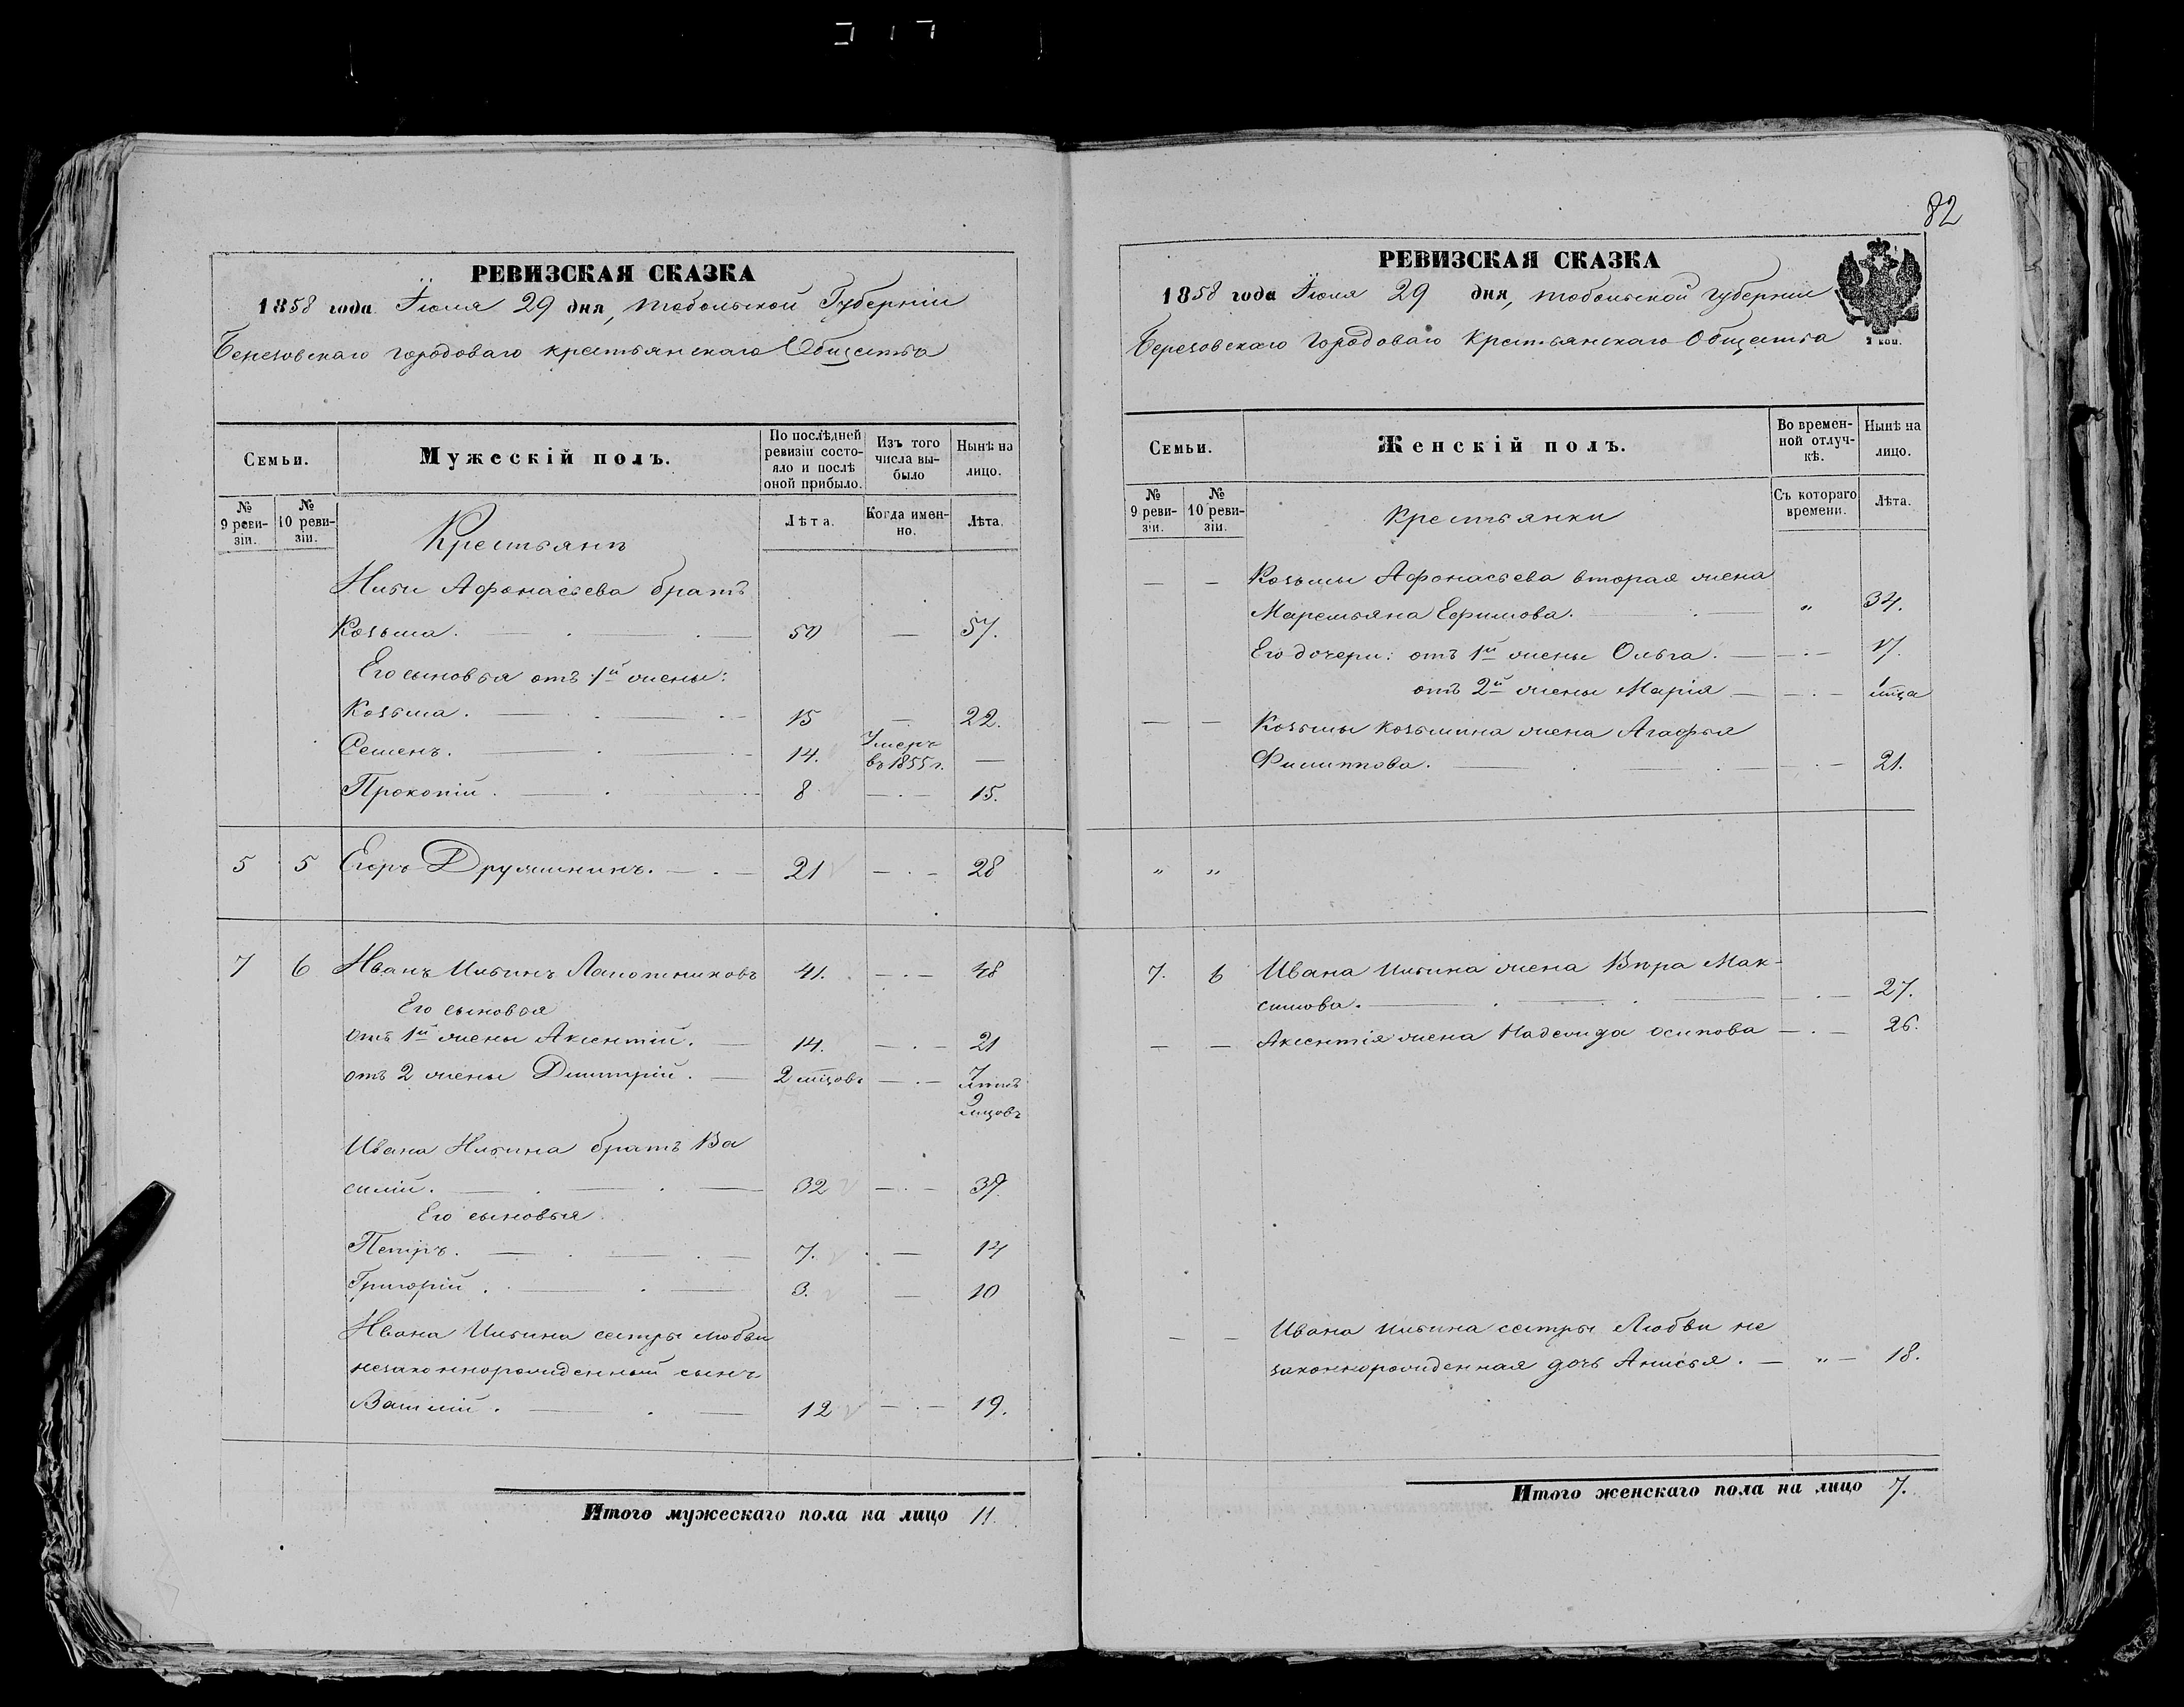 82
РЕВИЗСКАЯ СКАЗКА
1858 года Іюля 29 дня, Тобольской Губерніи
Березовскаго городоваго крестьянскаго Общества
Семьи.
Мужескій полъ.
По послѣдней ревизіи состояло и послѣ оной прибыло.
Изъ того числа выбыло
Нынѣ на лицо.
№ 9 ревизіи.
№ 10 ревизіи.
Крестьянъ
Лѣта.
Когда именно.
Лѣта.
Афонасьева братъ
Козьма. 50 — 57.
Его сыновья отъ 1й жены:
Козьма. 15 — 22.
Семенъ. 14. Умеръ въ 1855 г. —
Прокопій. 8 — 15.
5 5 Егоръ Дружининъ. 21 — 28
7 6 Иванъ Ильинъ Лапотниковъ 41. — 48
Его сыновья
отъ 1й жены Аксентій. 14. — 21
отъ 2 жены Дмитрій. 2 мцовъ — 7 лѣтъ 9 мцовъ
Ивана Ильина братъ Ва
силій. 32 — 39.
Его сыновья
Петръ. 7. — 14
Григорій. 3. — 10
Ивана Ильина сестры Любви
незаконнорожденный сынъ
Василій. 12 — 19.
Итого мужескаго пола на лицо 11.
РЕВИЗСКАЯ СКАЗКА
1858 года Іюля 29 дня, Тобольской губерніи
Березовскаго Городоваго Крестьянскаго Общества
Семьи.
Женскій полъ.
Во временной отлучкѣ.
Нынѣ на лицо.
№ 9 ревизіи.
№ 10 ревизіи.
Крестьянки
Съ котораго времени.
Лѣта.
— — Козьмы Афонасьева вторая жена
Маремьяна Ефимова. „ 34.
Его дочери: отъ 1й жены Ольга. — 17.
отъ 2й жены Марія — 1 мца
— — Козьмы Козьмина жена Агафья
Филиппова. — 21.
„ „
7. 6 Ивана Ильина жена Вѣра Мак-
симова. — 27.
— — Аксентія жена Надежда Осипова — 26.
— — Ивана Ильина сестры Любви не
законнорожденная дочь Анисья. — „ — 18.
Итого женскаго пола на лицо 7.